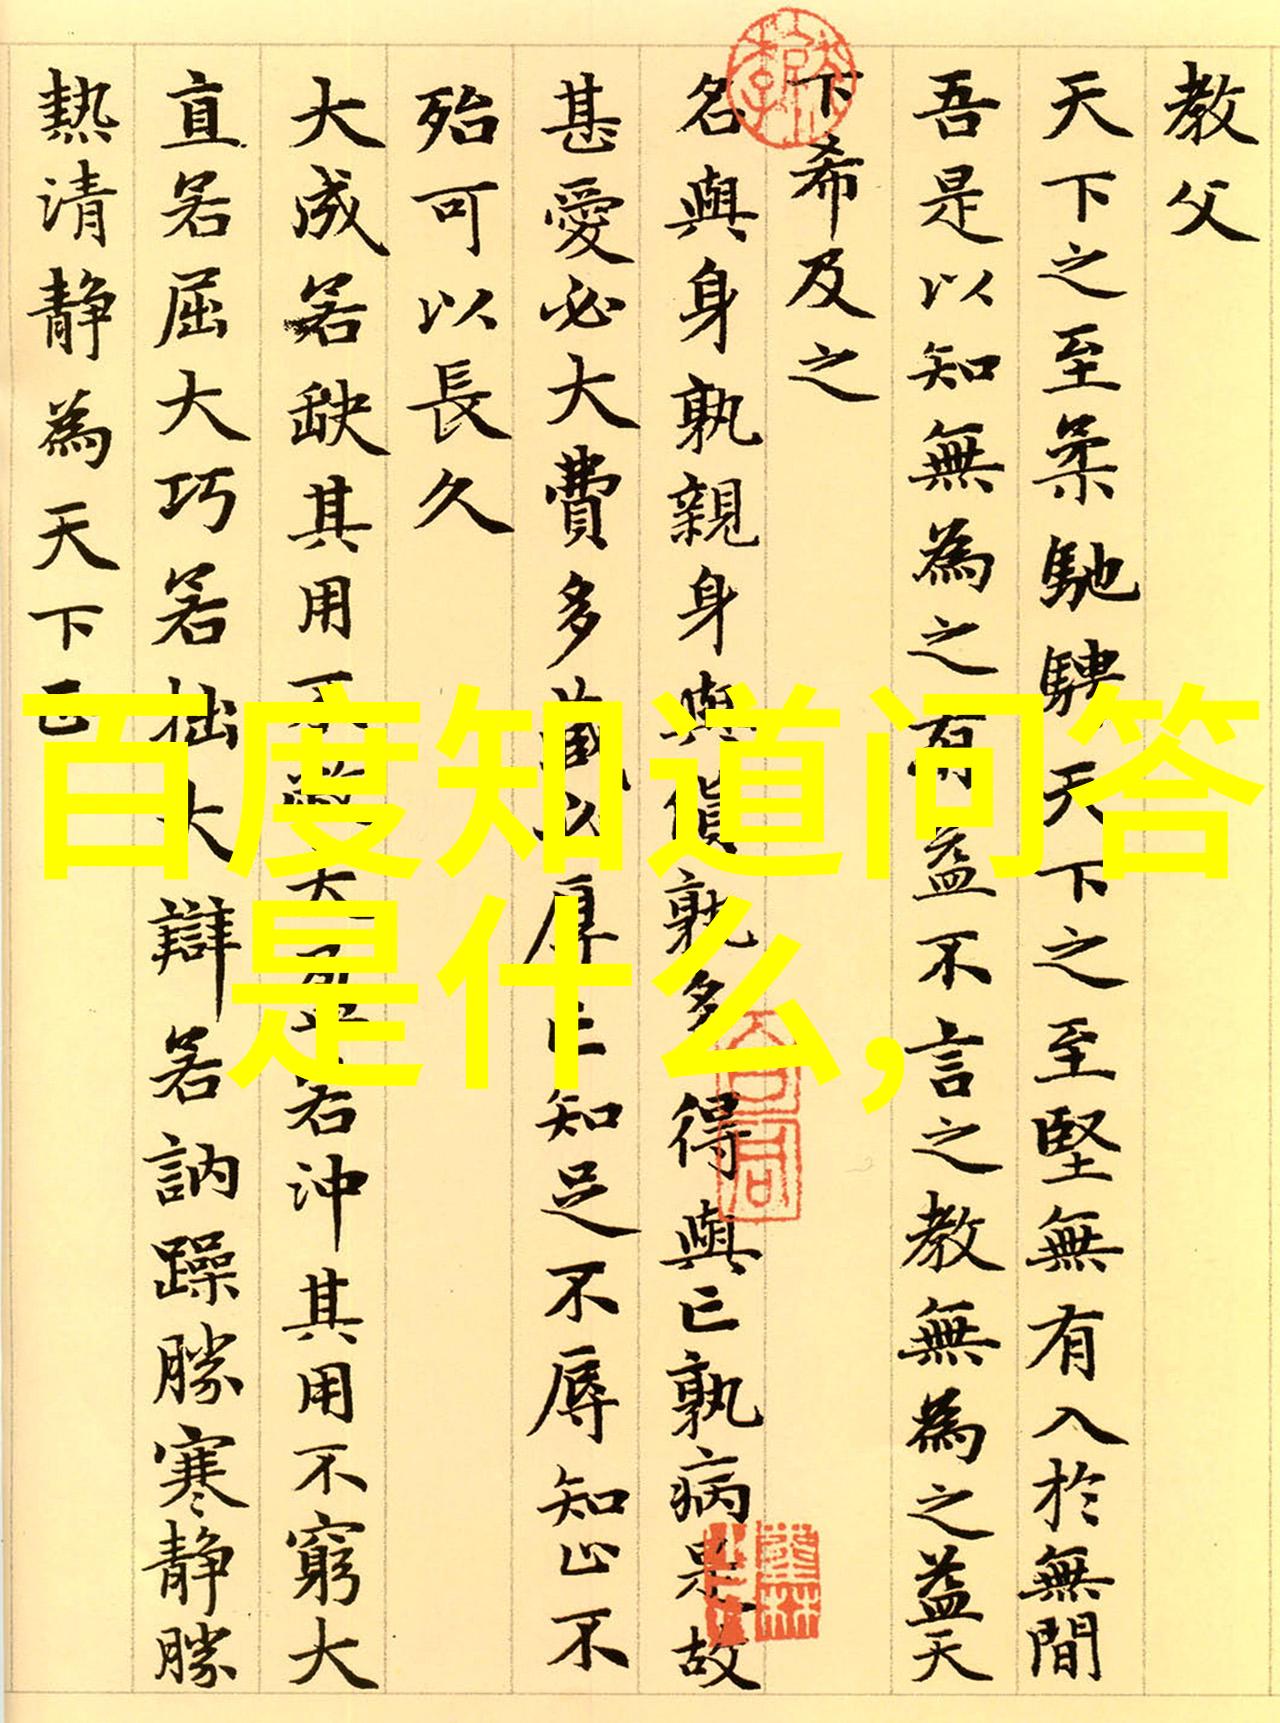 教父
天下之至柔馳騁天下之至堅無有入於無間
吾是以知無為之有益不言之教無為之益天
下希及之
名與身孰親身與貨孰多得與亡孰病是故
甚愛必大費多藏必厚亡知足不辱知止不
殆可以長久
大成若缺其用不敝大盈若沖其用不窮大
直若屈大巧若拙大辯若訥躁勝寒静勝
熱清静為天下正
百度知道问答
是什么,